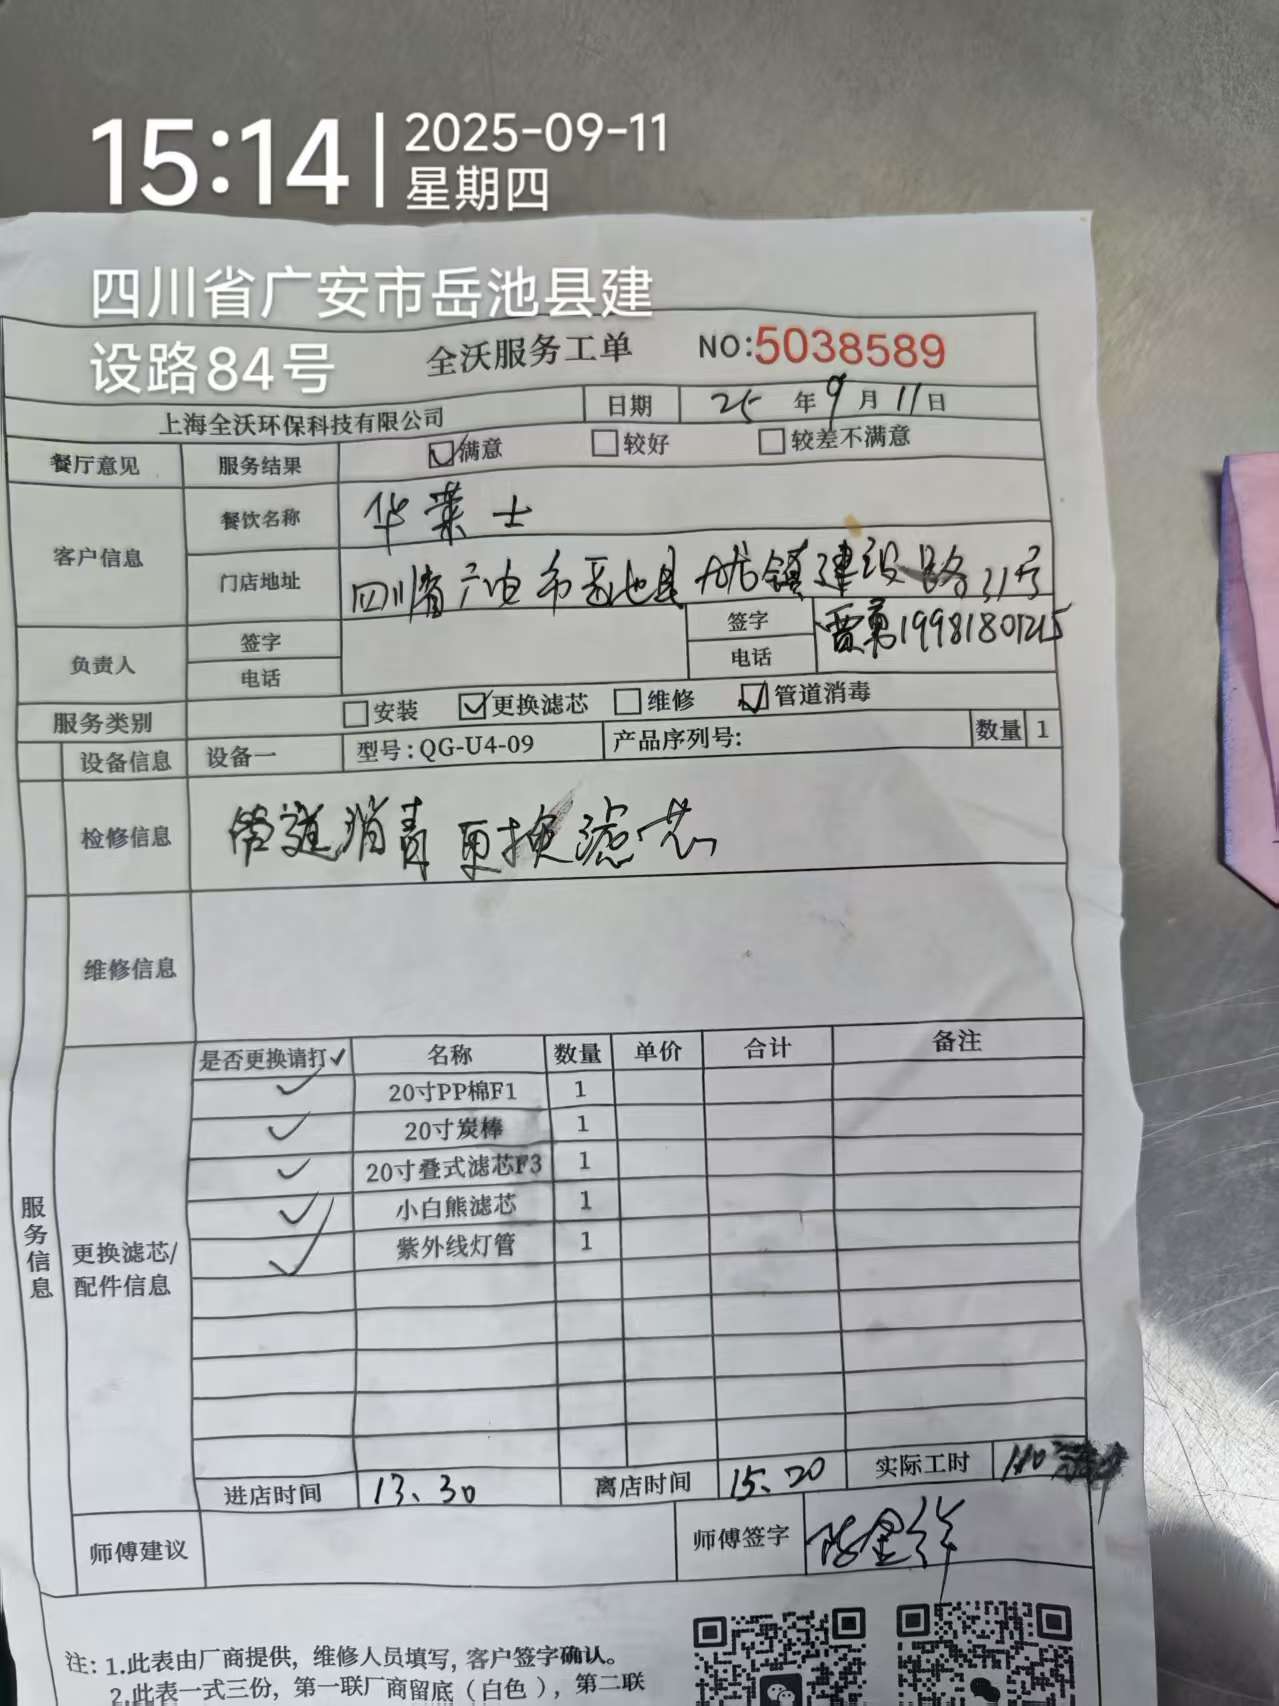 15:14
2025-09-11
星期四
四川省广安市岳池县建
设路84号
全沃服务工单 NO:5038589
上海全沃环保科技有限公司 日期 25年9月11日
餐厅意见 服务结果 ☑满意 □较好 □较差不满意
客户信息 餐饮名称 华莱士
门店地址 四川省广安市岳池县九龙镇建设路31号
负责人 签字 签字 贾勇
电话 电话
服务类别 □安装 ☑更换滤芯 □维修 ☑管道消毒
设备信息 设备一 型号:QG-U4-09 产品序列号: 数量 1
检修信息 管道消毒 更换滤芯
维修信息
服务信息
更换滤芯/
配件信息
是否更换请打✓ 名称 数量 单价 合计 备注
✓ 20寸PP棉F1 1
✓ 20寸炭棒 1
✓ 20寸叠式滤芯F3 1
✓ 小白熊滤芯 1
✓ 紫外线灯管 1
进店时间 13.30 离店时间 15.20 实际工时 110
师傅建议 师傅签字
注: 1.此表由厂商提供, 维修人员填写, 客户签字确认。
2.此表一式三份, 第一联厂商留底(白色), 第二联